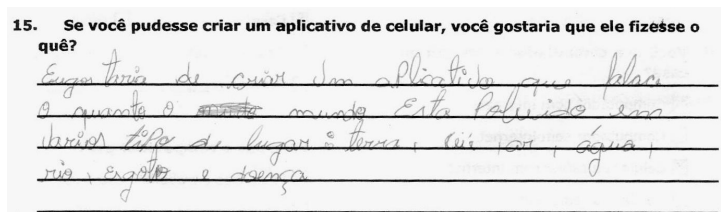 15. Se você pudesse criar um aplicativo de celular, você gostaria que ele fizesse o
quê?
Eu gostaria de criar um aplicativo que falace
o quanto o mundo Esta Poluido em
varios tipo de lugar : terra, ar, água,
rio, esgoto e doença